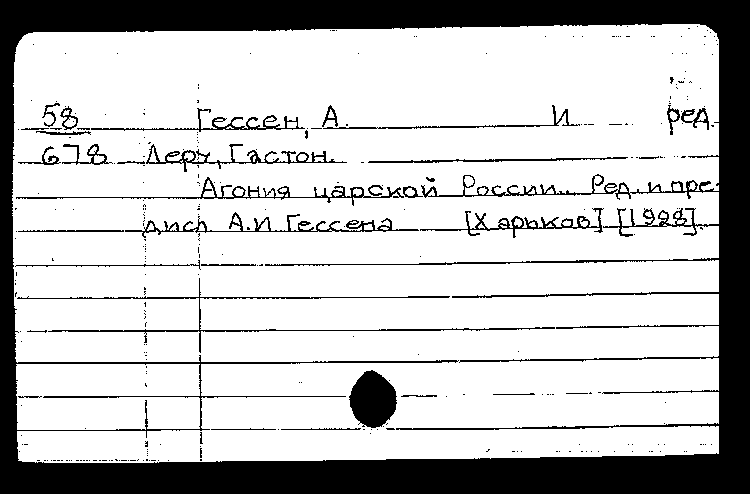 58 Гессен, А. И ред.
678 Леру, Гастон.
Агония царской России.. Ред. и пре-
дисл А.И Гессена [Харьков] [1928].